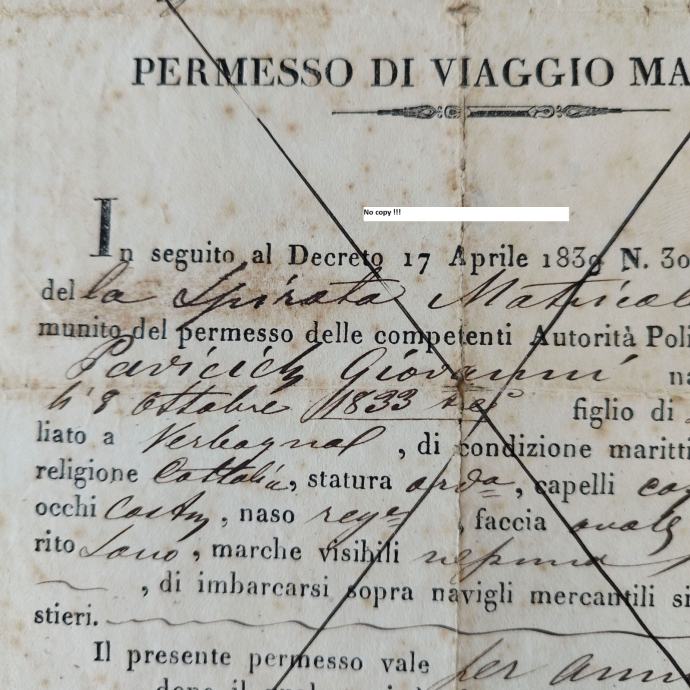 PERMESSO DI VIAGGIO MA
No copy !!!
In seguito al Decreto 17 Aprile 1839 N. 30
del la Spirata Matricol
munito del permesso delle competenti Autorità Poli
Pavicich Giovanni na
li 8 Ottobre 1833 figlio di
liato a Verbagnal, di condizione maritti
religione Cattolica, statura orda, capelli cas
occhi Castni, naso regre, faccia ovale
rito Sano, marche visibili nessuna
, di imbarcarsi sopra navigli mercantili si
stieri.
Il presente permesso vale per anni